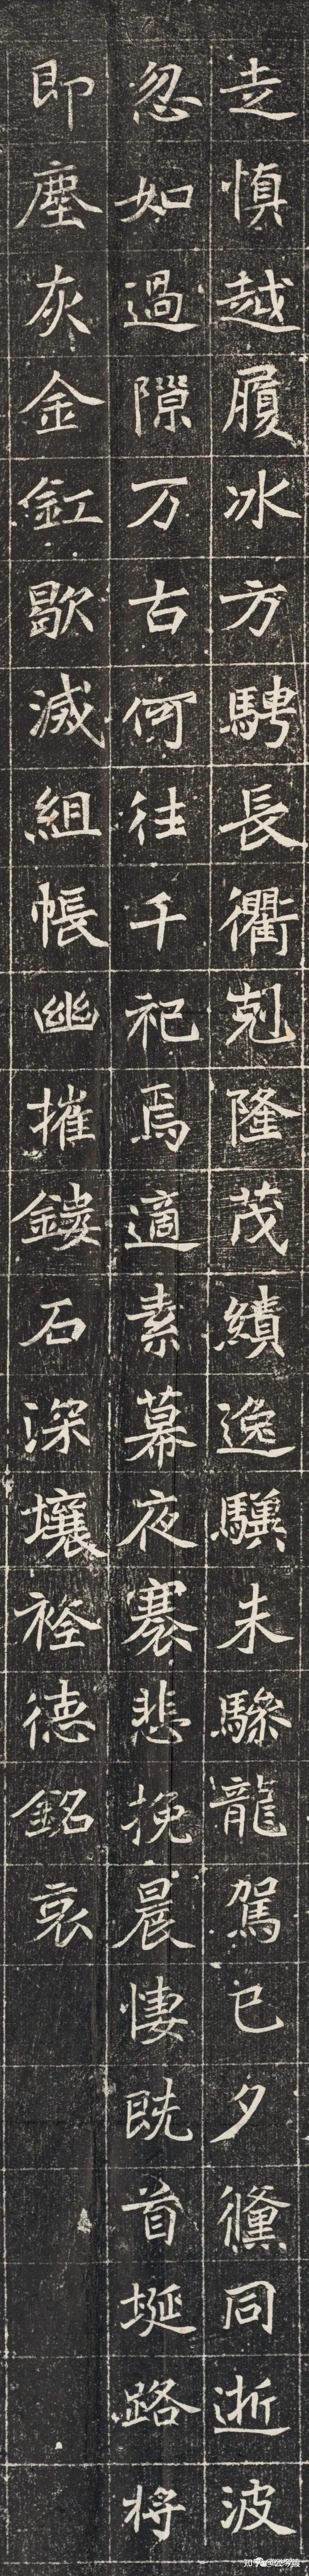 走慎越履冰方騁長衢剋隆茂績逸驥未騁龍駕已夕儵同逝波
忽如過隙万古何往千祀焉適素幕夜褰悲挽晨悽既首埏路將
即塵灰金釭歇滅組帳幽摧鏤石深壤裕德銘哀